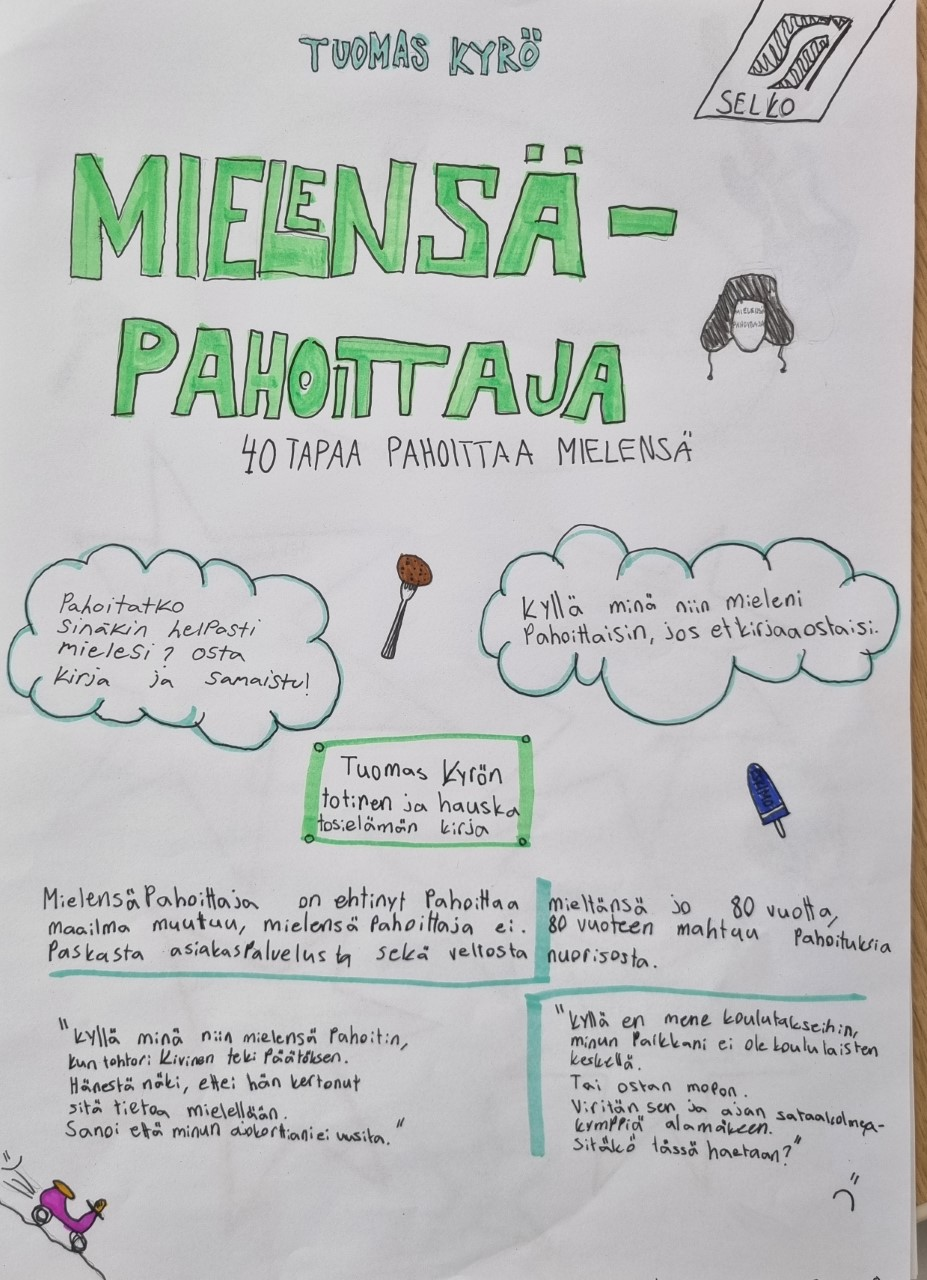 TUOMAS KYRÖ
SELKO
MIELENSÄ-
PAHOITTAJA
MIELENSÄ
PAHOITTAJA
40 TAPAA PAHOITTAA MIELENSÄ
Pahoitatko
sinäkin helposti
mielesi? osta
kirja ja samaistu!
Kyllä minä niin mieleni
Pahoittaisin, jos et kirjaa ostaisi.
Tuomas Kyrön
totinen ja hauska
tosielämän kirja
MielensäPahoittaja on ehtinyt Pahoittaa mieltänsä jo 80 vuotta,
maailma muutuu, mielensä Pahoittaja ei. 80 vuoteen mahtuu Pahoituksia
Paskasta asiakasPalvelusta sekä veltosta nuorisosta.
"Kyllä minä niin mielensä Pahoitin,
kun tohtori Kivinen teki Päätöksen.
Hänestä näki, ettei hän kertonut
sitä tietoa mielellään.
Sanoi että minun ajokorttiani ei uusita."
"Kyllä en mene koulutakseihin,
minun Paikkani ei ole koululaisten
keskellä.
Tai ostan mopon.
Viritän sen ja ajan sataakolmea-
kymppiä alamäkeen.
Sitäkö tässä haetaan?"